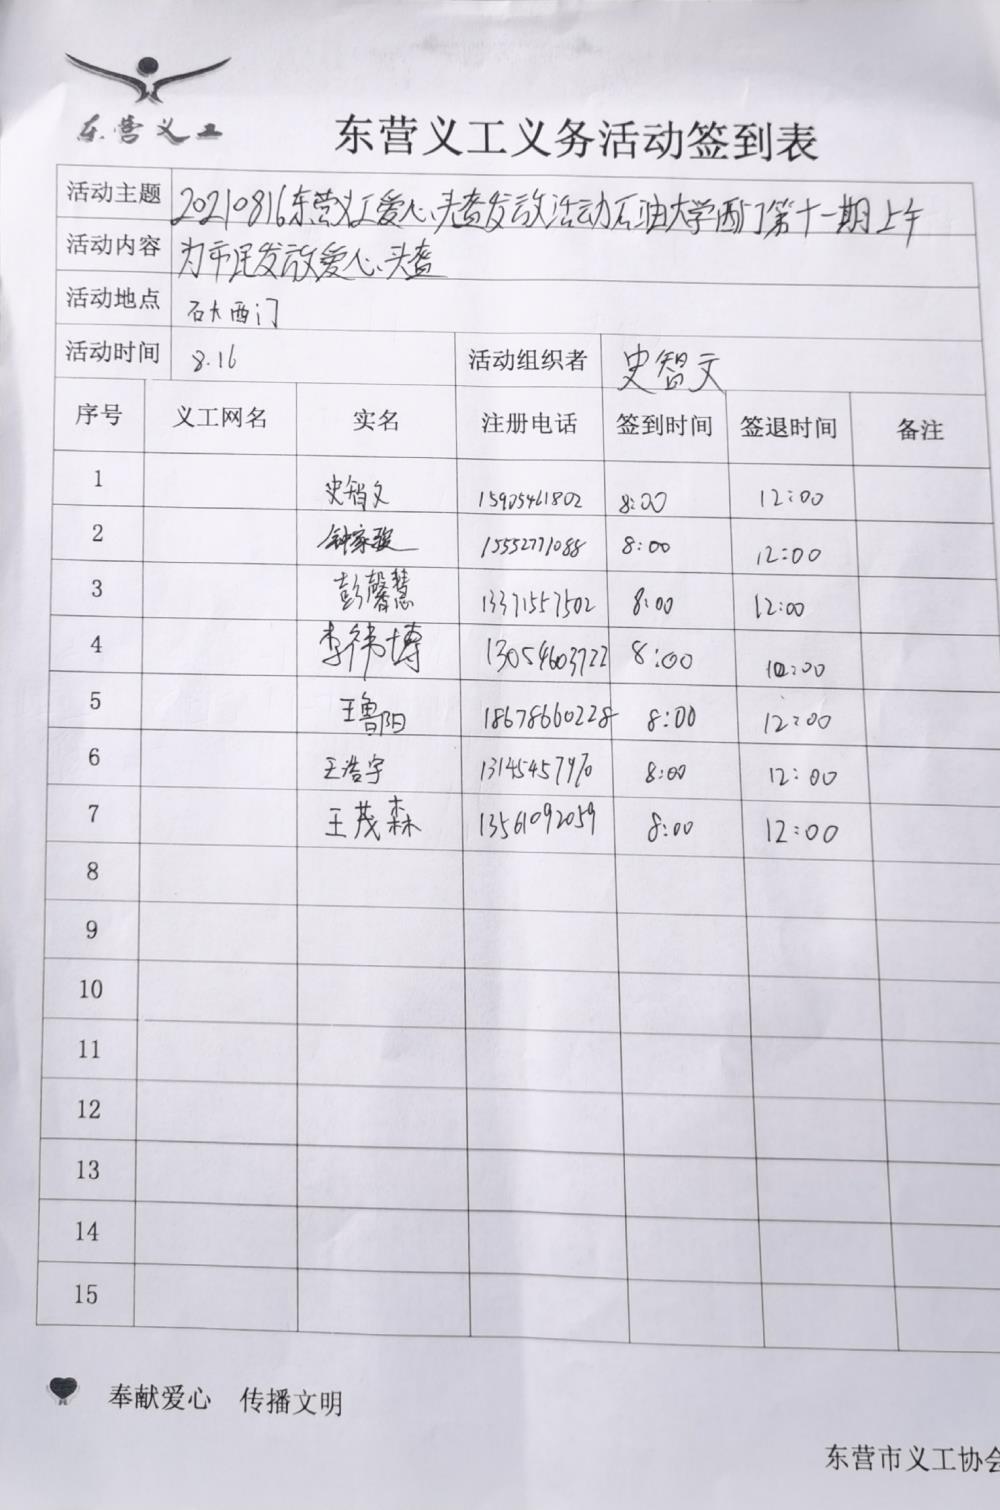 东营义工
东营义工义务活动签到表
活动主题 20210816东营义工爱心头盔发放活动石油大学西门第十一期上午
活动内容 为市民发放爱心头盔
活动地点 石大西门
活动时间 8.16 活动组织者 史智文
序号 义工网名 实名 注册电话 签到时间 签退时间 备注
1 史智文 15905461802 8:00 12:00
2 钟家骏 15552771088 8:00 12:00
3 彭馨慧 13371557502 8:00 12:00
4 李祎博 13054603722 8:00 12:00
5 王鲁阳 18678660228 8:00 12:00
6 王浩宇 13145457970 8:00 12:00
7 王茂森 13561092059 8:00 12:00
8
9
10
11
12
13
14
15
奉献爱心 传播文明
东营市义工协会